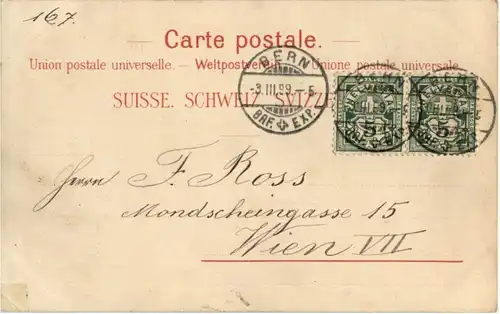 167.
Carte postale.
Union postale universelle. — Weltpostverein. — Unione postale universale.
BERN
-3.III.99.-5
BRF. EXP.
SUISSE. SCHWEIZ. SVIZZ
HELVETIA HELVETIA
5 5
Herrn F. Ross
Mondscheingasse 15
Wien VII